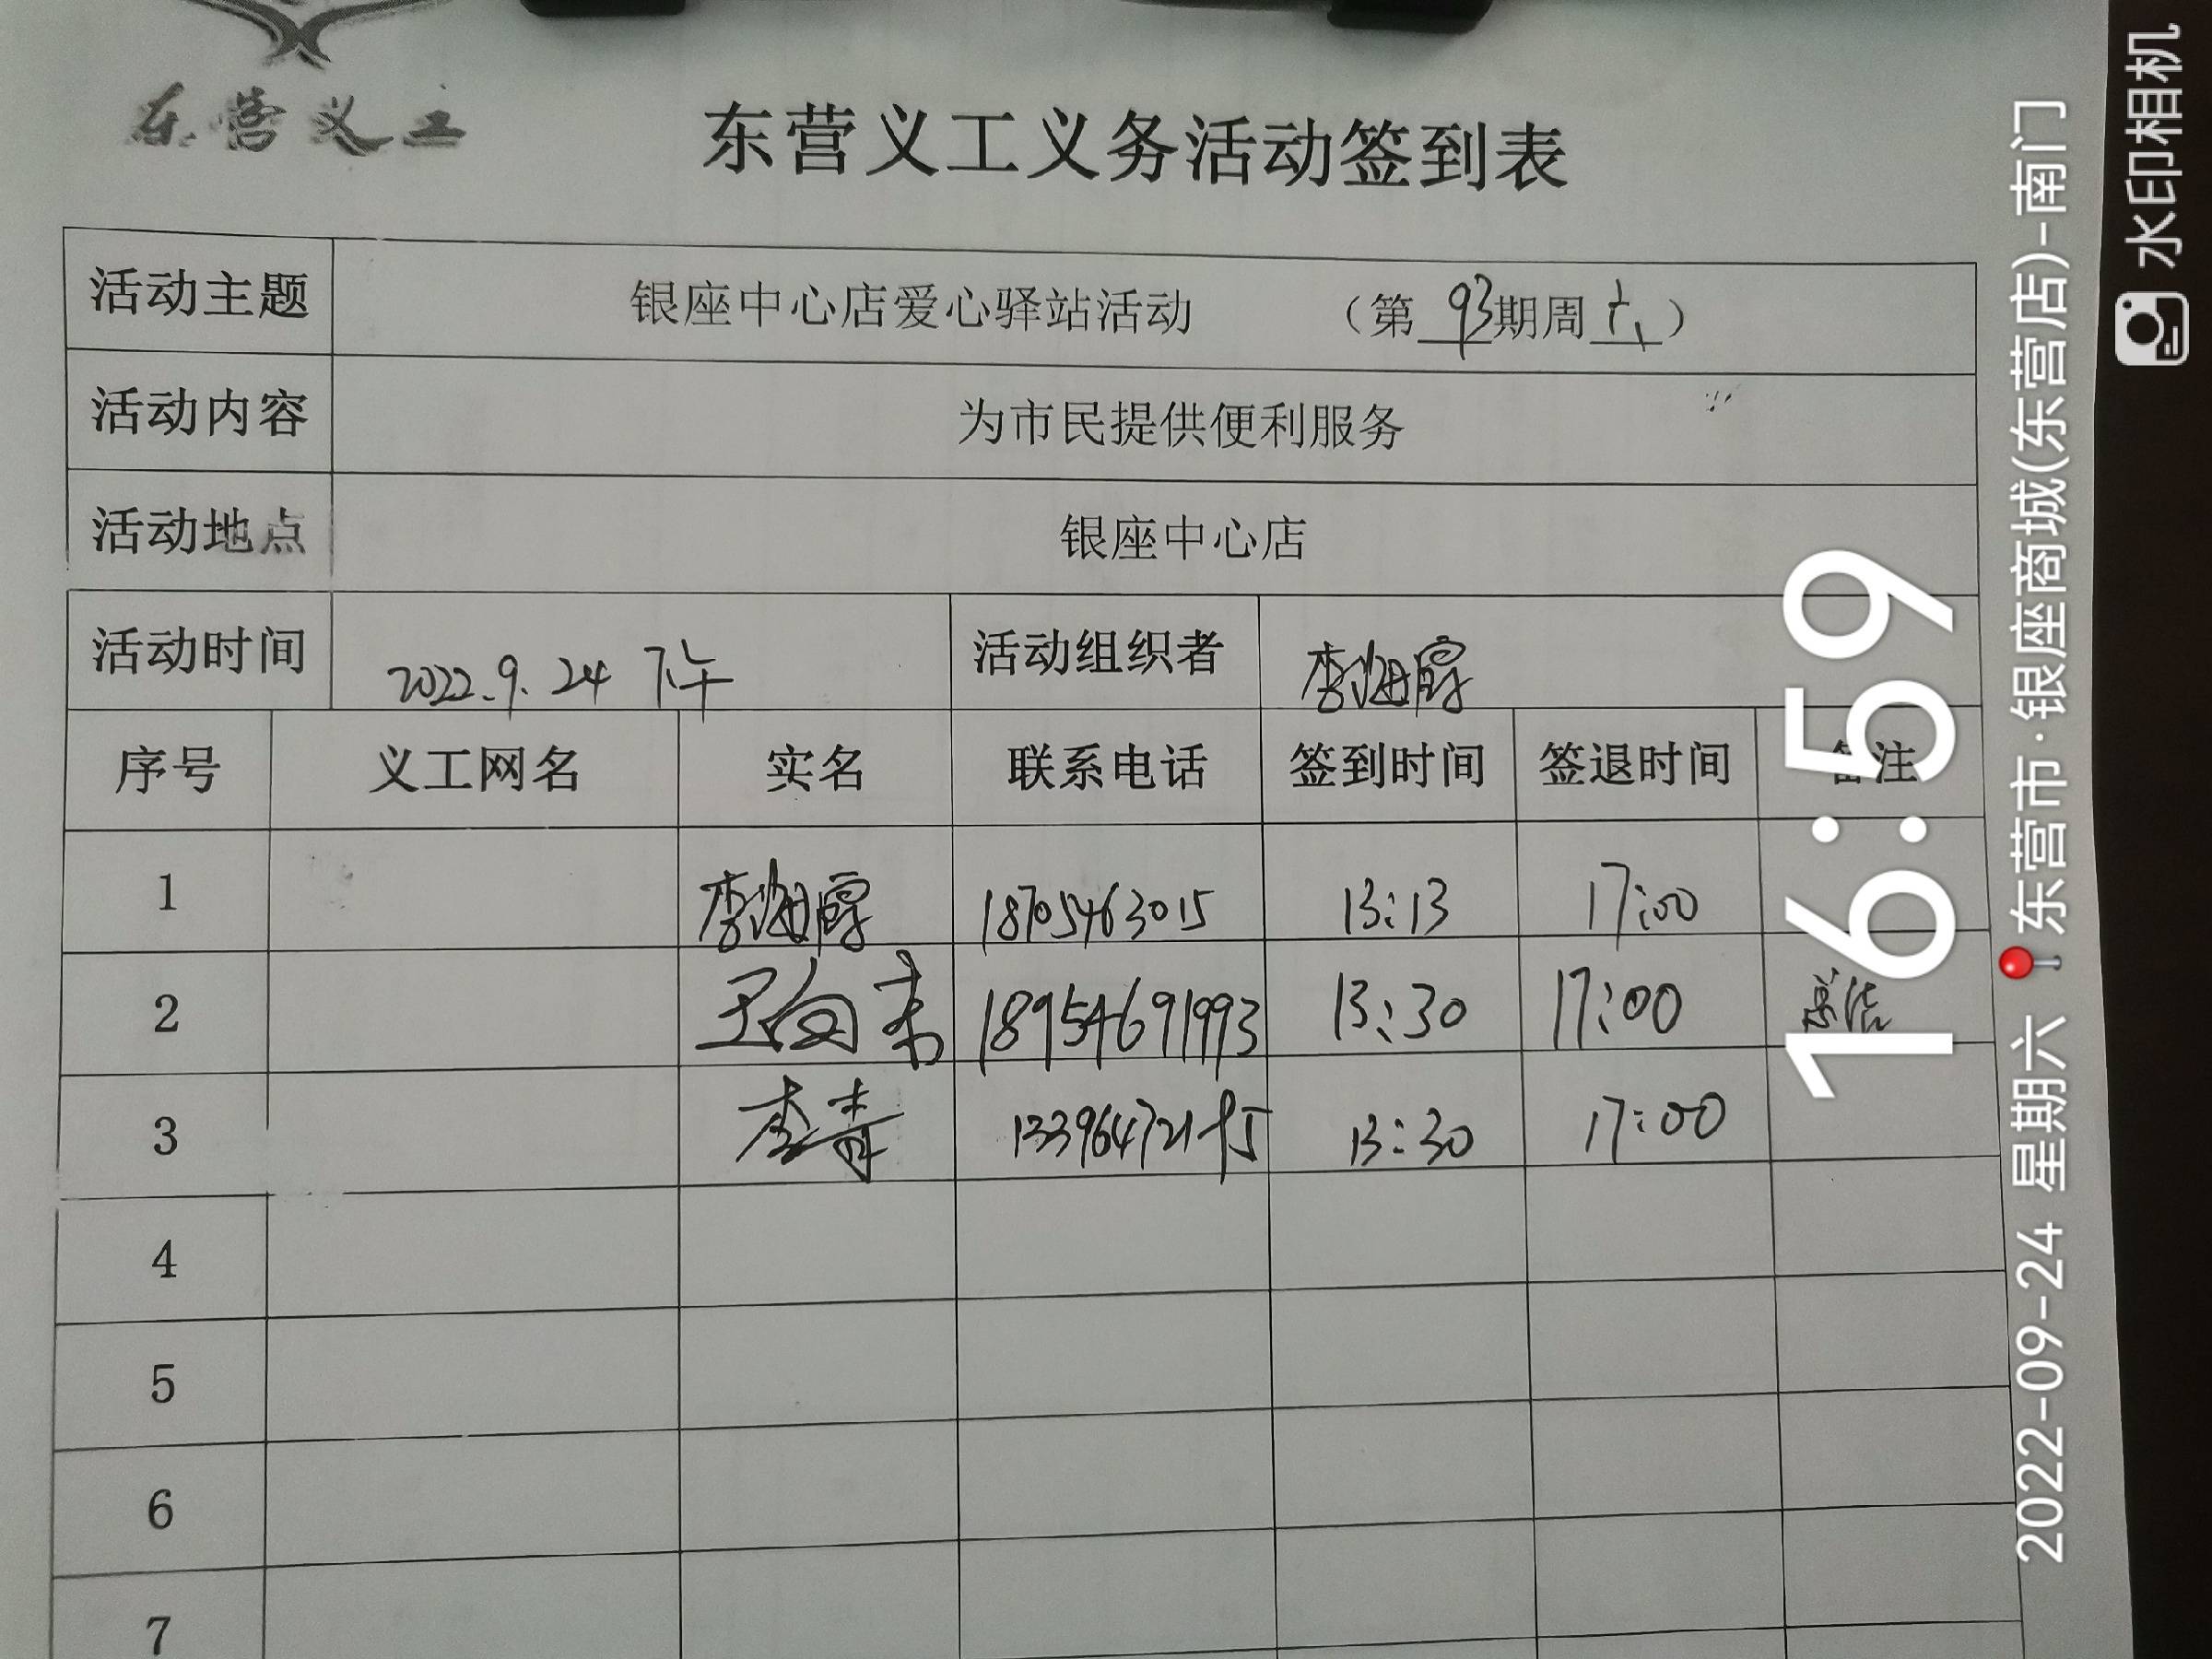 东营义工
东营义工义务活动签到表
活动主题 银座中心店爱心驿站活动 （第 93 期周 六 ）
活动内容 为市民提供便利服务
活动地点 银座中心店
活动时间 2022.9.24 下午 活动组织者 李海霞
序号 义工网名 实名 联系电话 签到时间 签退时间 备注
1 李海霞 18705463015 13:13 17:00
2 王向 18954691993 13:30 17:00
3 李青 13:30 17:00
4
5
6
7
16:59
2022-09-24 星期六 东营市·银座商城(东营店)-南门
水印相机